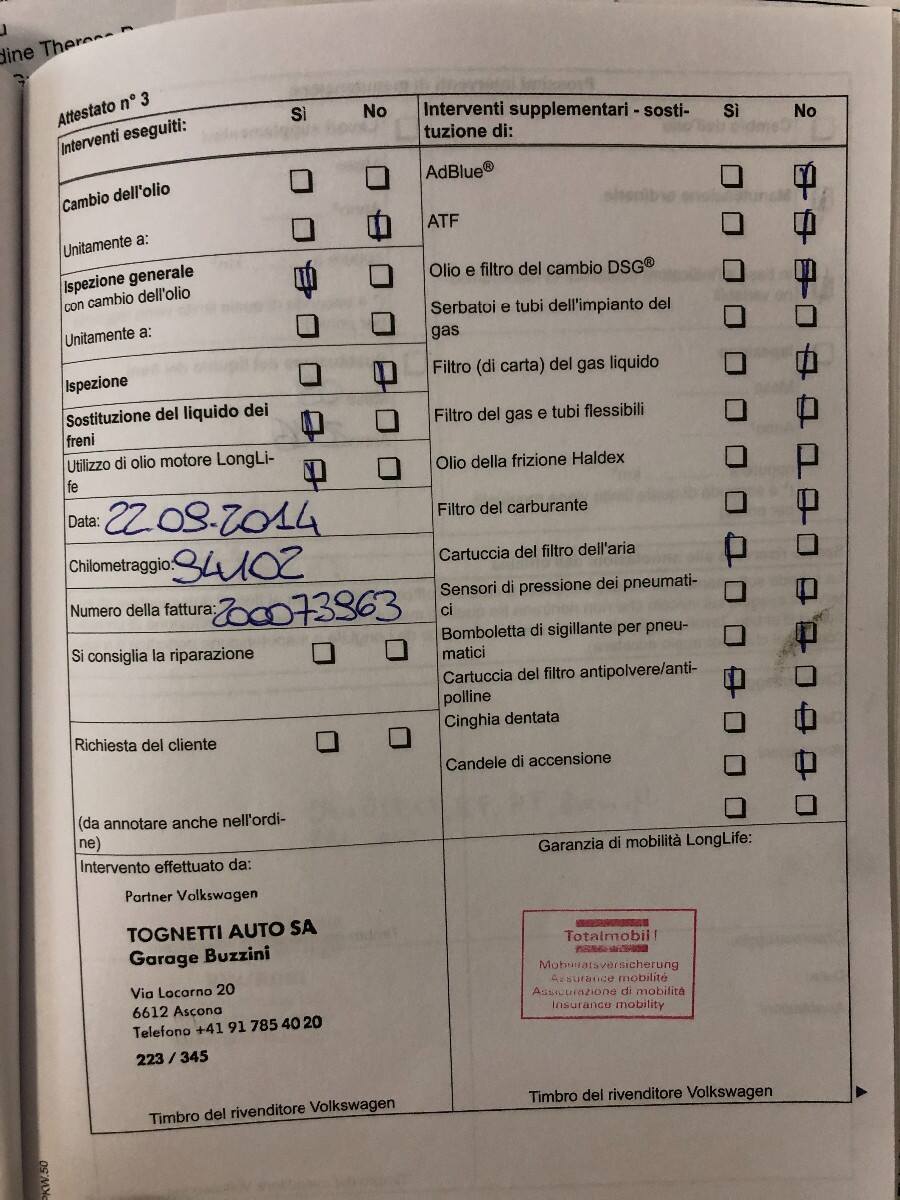 dine Therese
Attestato n° 3
Interventi eseguiti:
Sì
No
Cambio dell'olio
Unitamente a:
Ispezione generale
con cambio dell'olio
Unitamente a:
Ispezione
Sostituzione del liquido dei
freni
Utilizzo di olio motore LongLi-
fe
Data: 22.09.2014
Chilometraggio: 94102
Numero della fattura: 200073963
Si consiglia la riparazione
Richiesta del cliente
(da annotare anche nell'ordi-
ne)
Interventi supplementari - sosti-
tuzione di:
Sì
No
AdBlue®
ATF
Olio e filtro del cambio DSG®
Serbatoi e tubi dell'impianto del
gas
Filtro (di carta) del gas liquido
Filtro del gas e tubi flessibili
Olio della frizione Haldex
Filtro del carburante
Cartuccia del filtro dell'aria
Sensori di pressione dei pneumati-
ci
Bomboletta di sigillante per pneu-
matici
Cartuccia del filtro antipolvere/anti-
polline
Cinghia dentata
Candele di accensione
Intervento effettuato da:
Partner Volkswagen
TOGNETTI AUTO SA
Garage Buzzini
Via Locarno 20
6612 Ascona
Telefono +41 91 785 40 20
223 / 345
Timbro del rivenditore Volkswagen
Garanzia di mobilità LongLife:
Totalmobil!
Mobilitätsversicherung
Assurance mobilité
Assicurazione di mobilità
Insurance mobility
Timbro del rivenditore Volkswagen
PKW.50